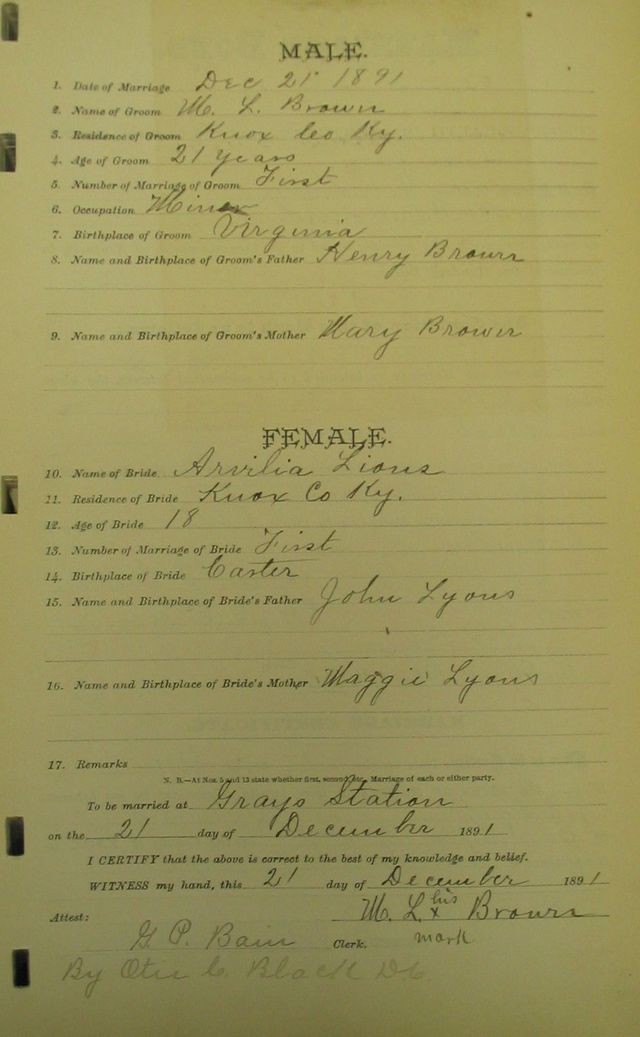 MALE.
1. Date of Marriage Dec 21 1891
2. Name of Groom M. L. Brown
3. Residence of Groom Knox Co Ky.
4. Age of Groom 21 years
5. Number of Marriage of Groom First
6. Occupation Miner
7. Birthplace of Groom Virginia
8. Name and Birthplace of Groom's Father Henry Brown
9. Name and Birthplace of Groom's Mother Mary Brown
FEMALE.
10. Name of Bride Arvilia Lions
11. Residence of Bride Knox Co Ky.
12. Age of Bride 18
13. Number of Marriage of Bride First
14. Birthplace of Bride Carter
15. Name and Birthplace of Bride's Father John Lyons
16. Name and Birthplace of Bride's Mother Maggie Lyons
17. Remarks
N. B.—At Nos. 5 and 13 state whether first, second, etc. Marriage of each or either party.
To be married at Grays Station
on the 21 day of December 1891
I CERTIFY that the above is correct to the best of my knowledge and belief.
WITNESS my hand, this 21 day of December 1891
M. L. his x Brown
Attest:
G. P. Bain Clerk. mark
By Otis C. Black DC